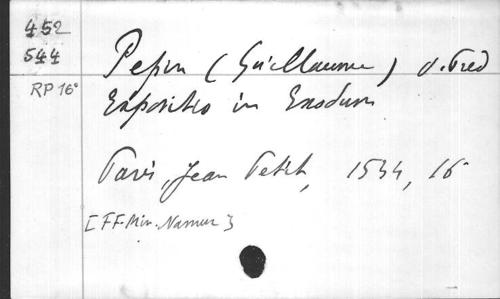 452
544
Pepin (Guillaume) o. Pred
RP 16°
Expositio in Exodum
Paris, Jean Petit, 1534, 16°
[FF. Min. Namur]